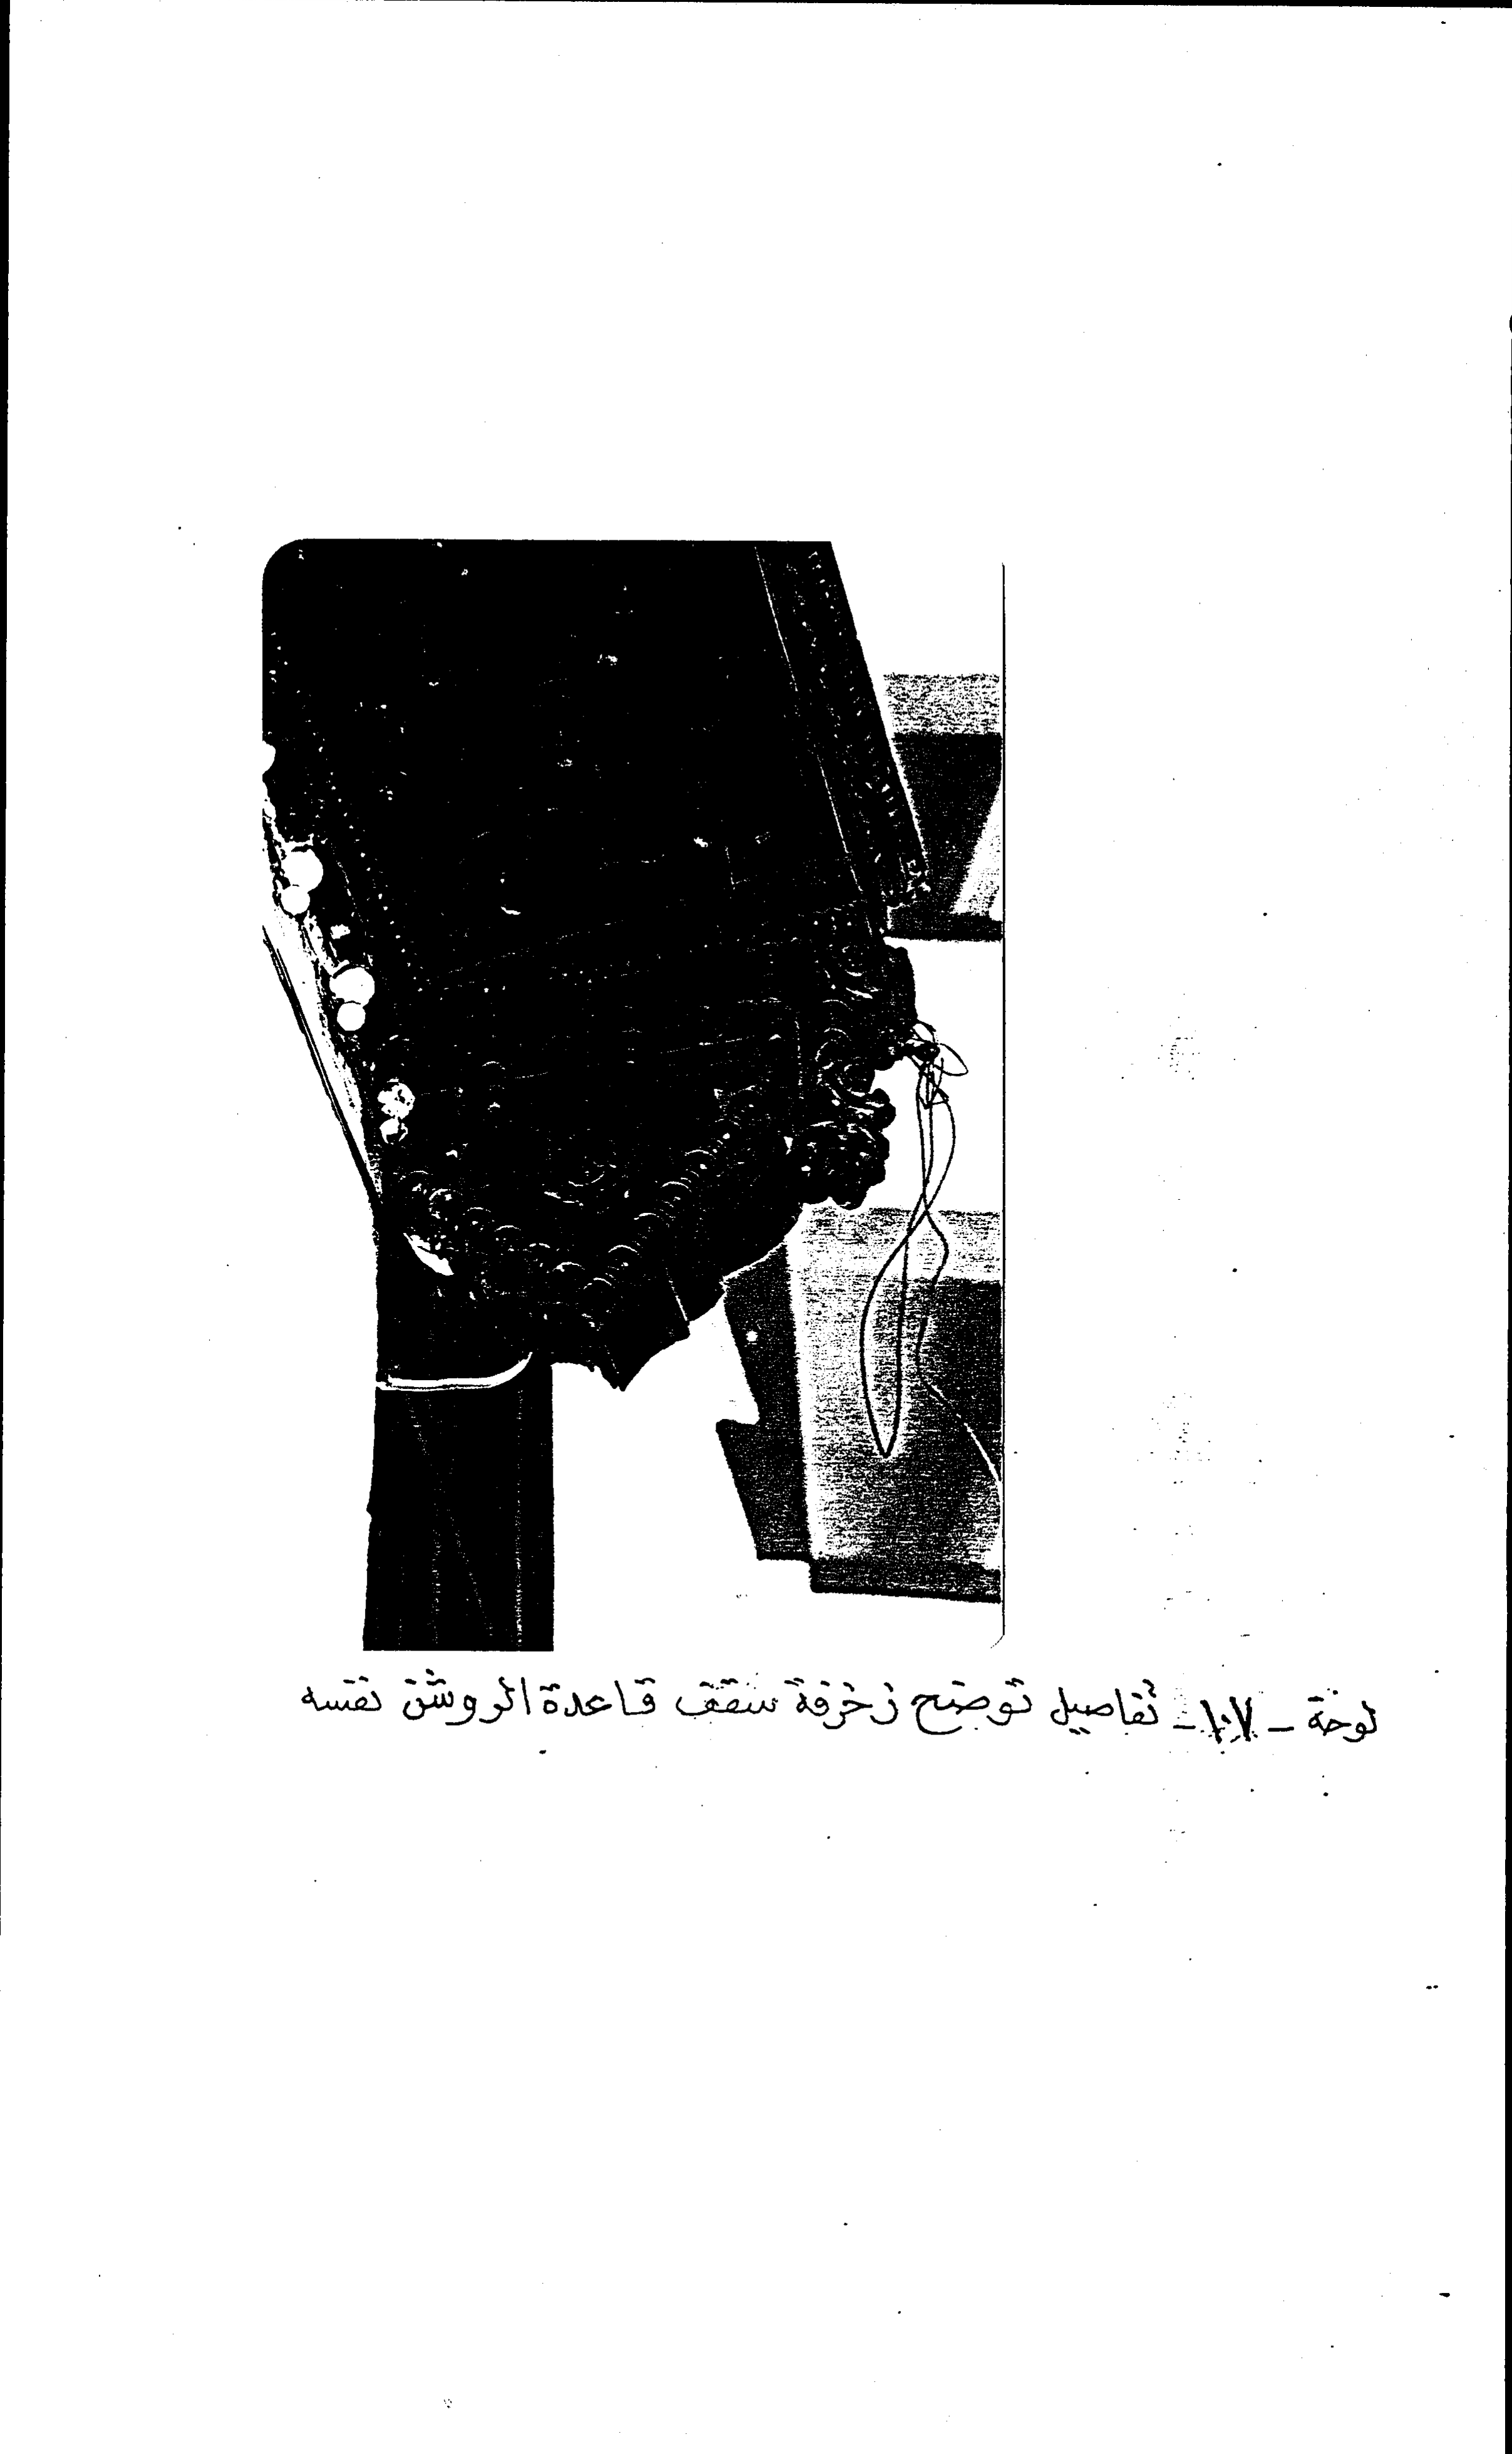 لوحة - ١٠٧ - تفاصيل توضح زخرفة سقف قاعدة الروشن نفسه